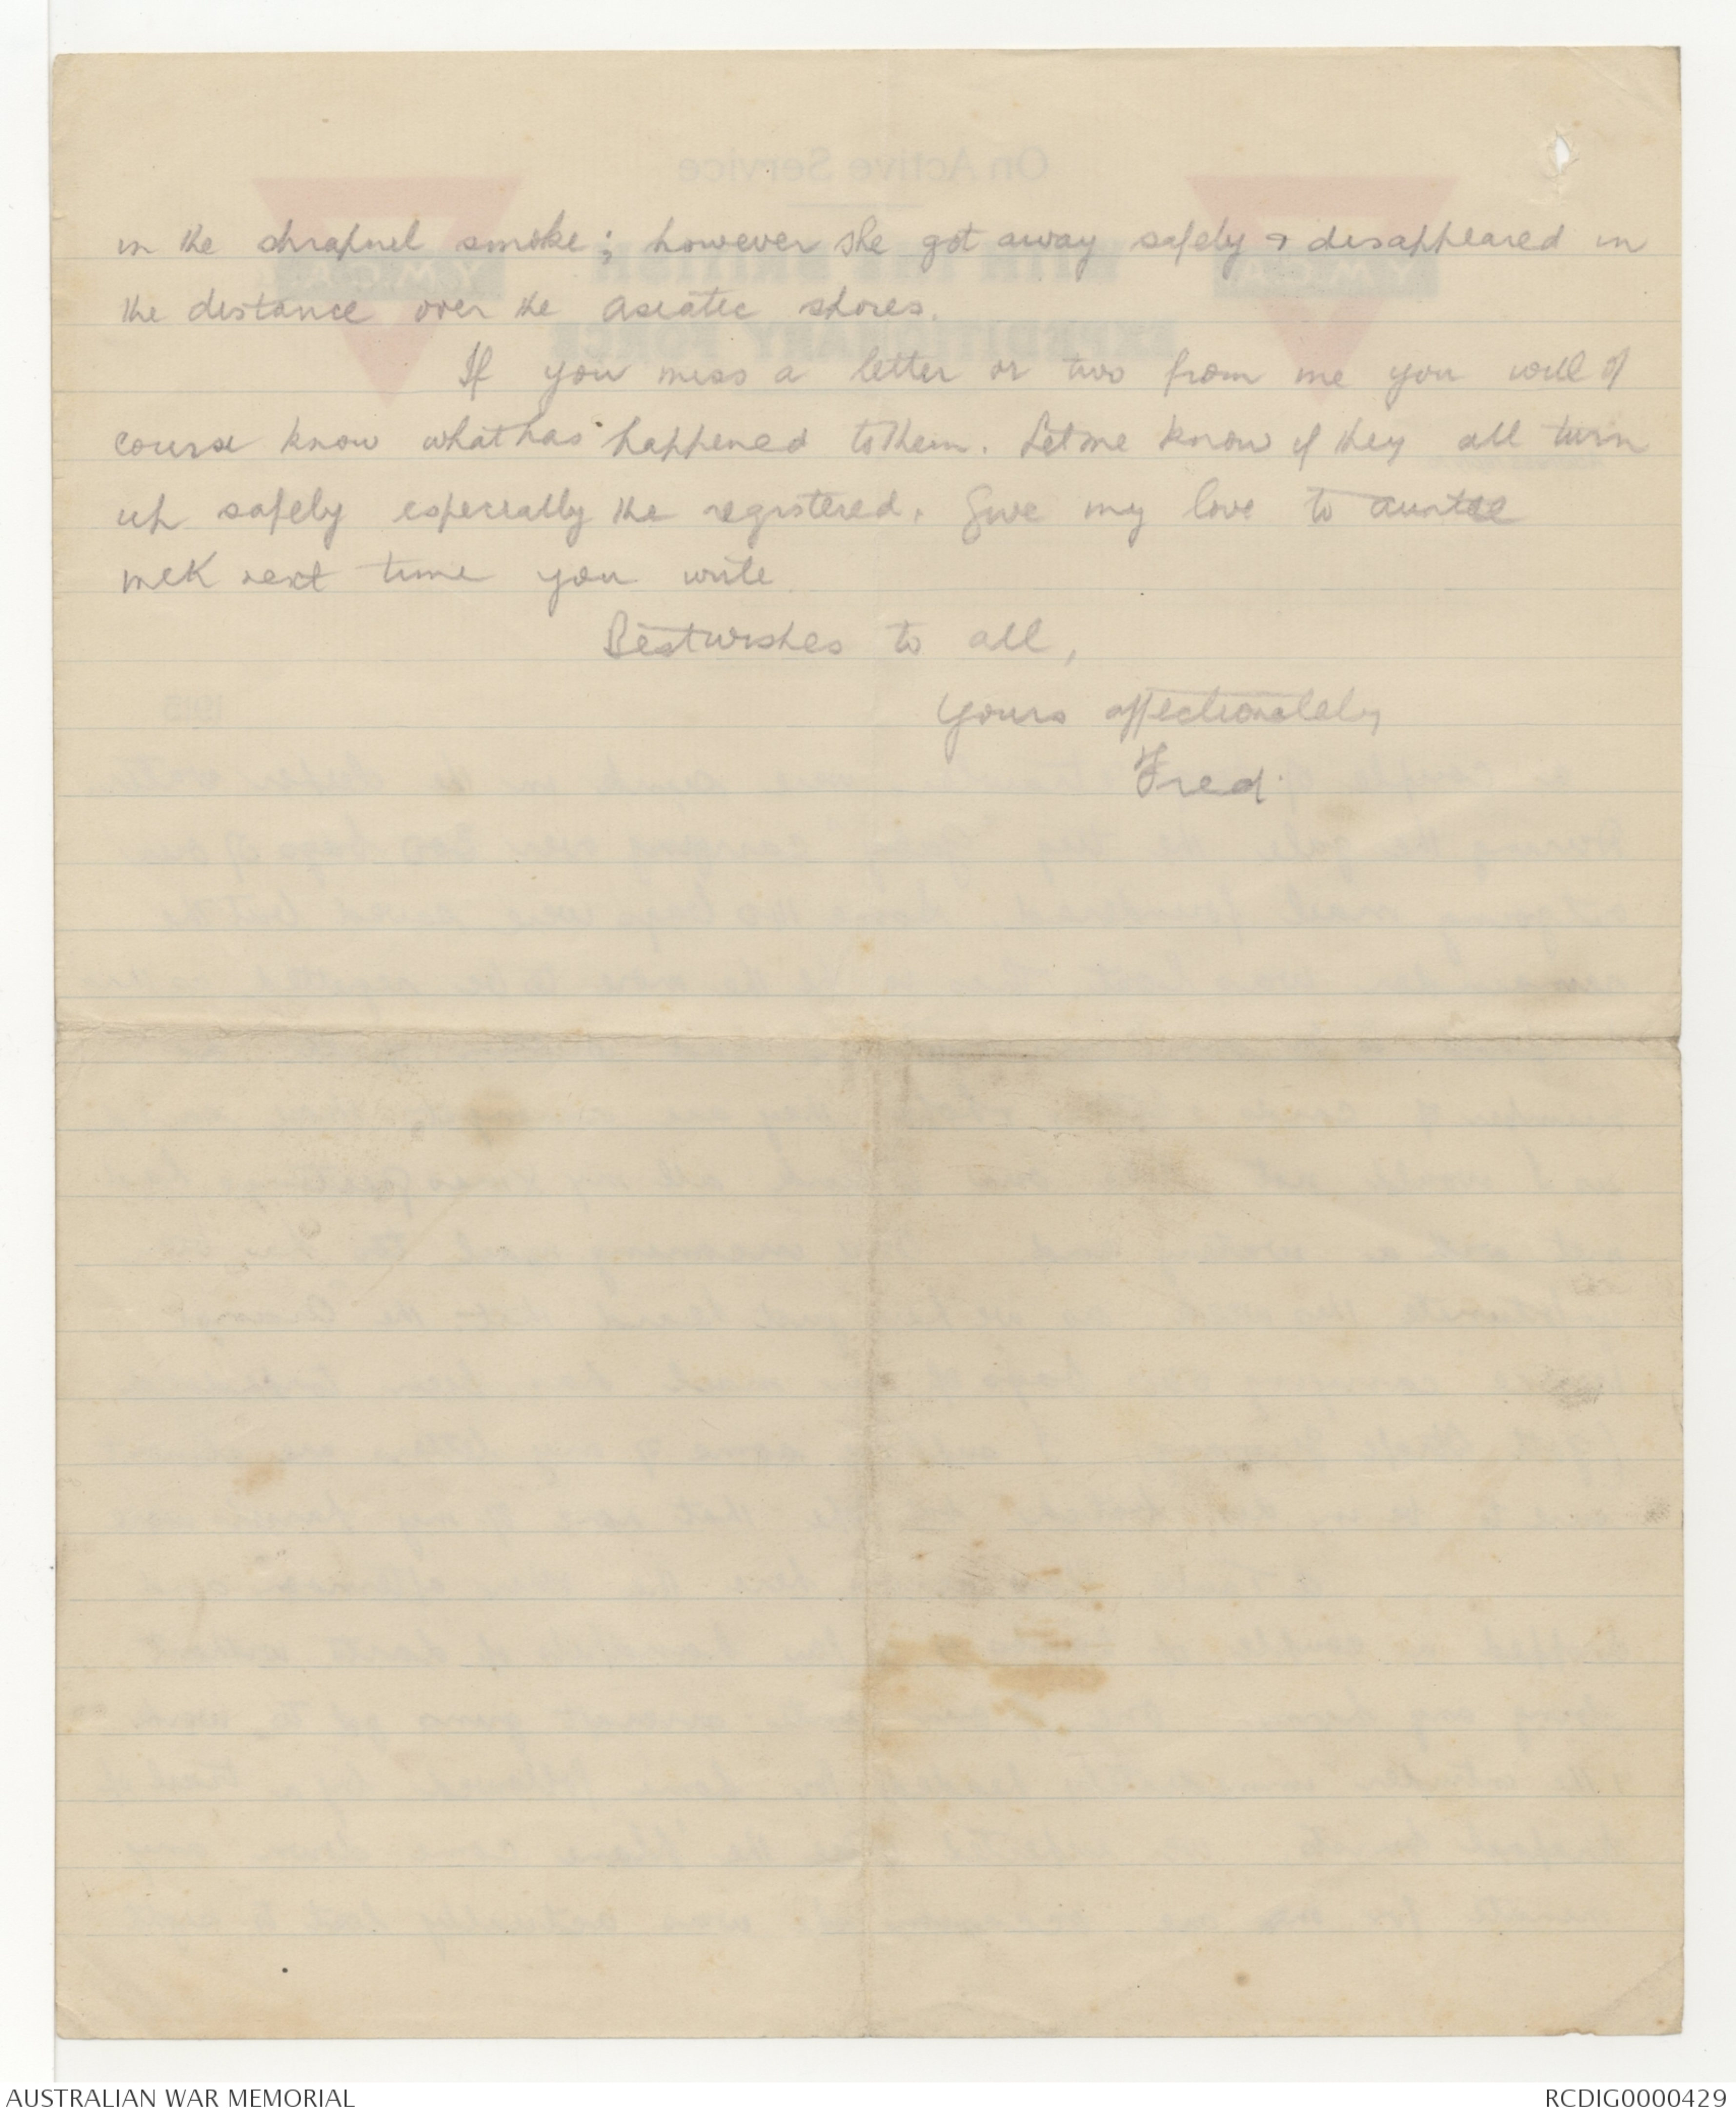 in the shrapnel smoke; however she got away safely & disappeared in
the distance over the asiatic shores.
If you miss a letter or two from me you will of
course know what has happened to them. Let me know if they all turn
up safely especially the registered. Give my love to auntie
McK next time you write
Best wishes to all,
Yours affectionately
Fred.
AUSTRALIAN WAR MEMORIAL
RCDIG0000429